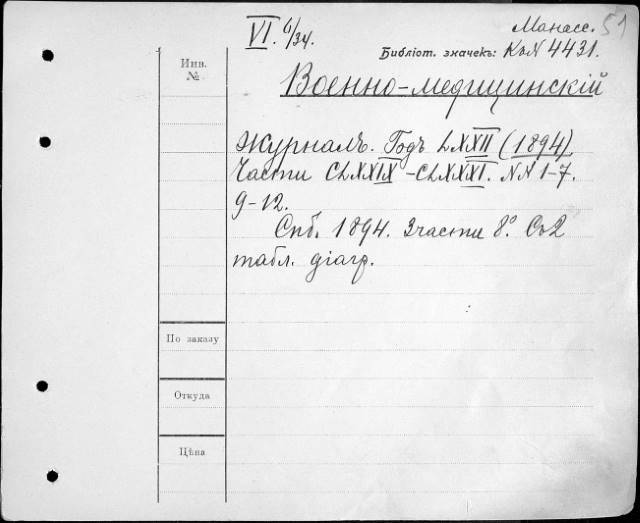 VI. 6/34.
Манасс. 51
Библіот. значекъ: КъN 4431.
Инв.
№
Военно-медицинскій
журналъ. Годъ LXXII (1894)
Части CLXXIX-CLXXXI. NN 1-7.
9-12.
Спб. 1894. 3 части 8°. Съ 2
табл. діагр.
По заказу
Откуда
Цѣна